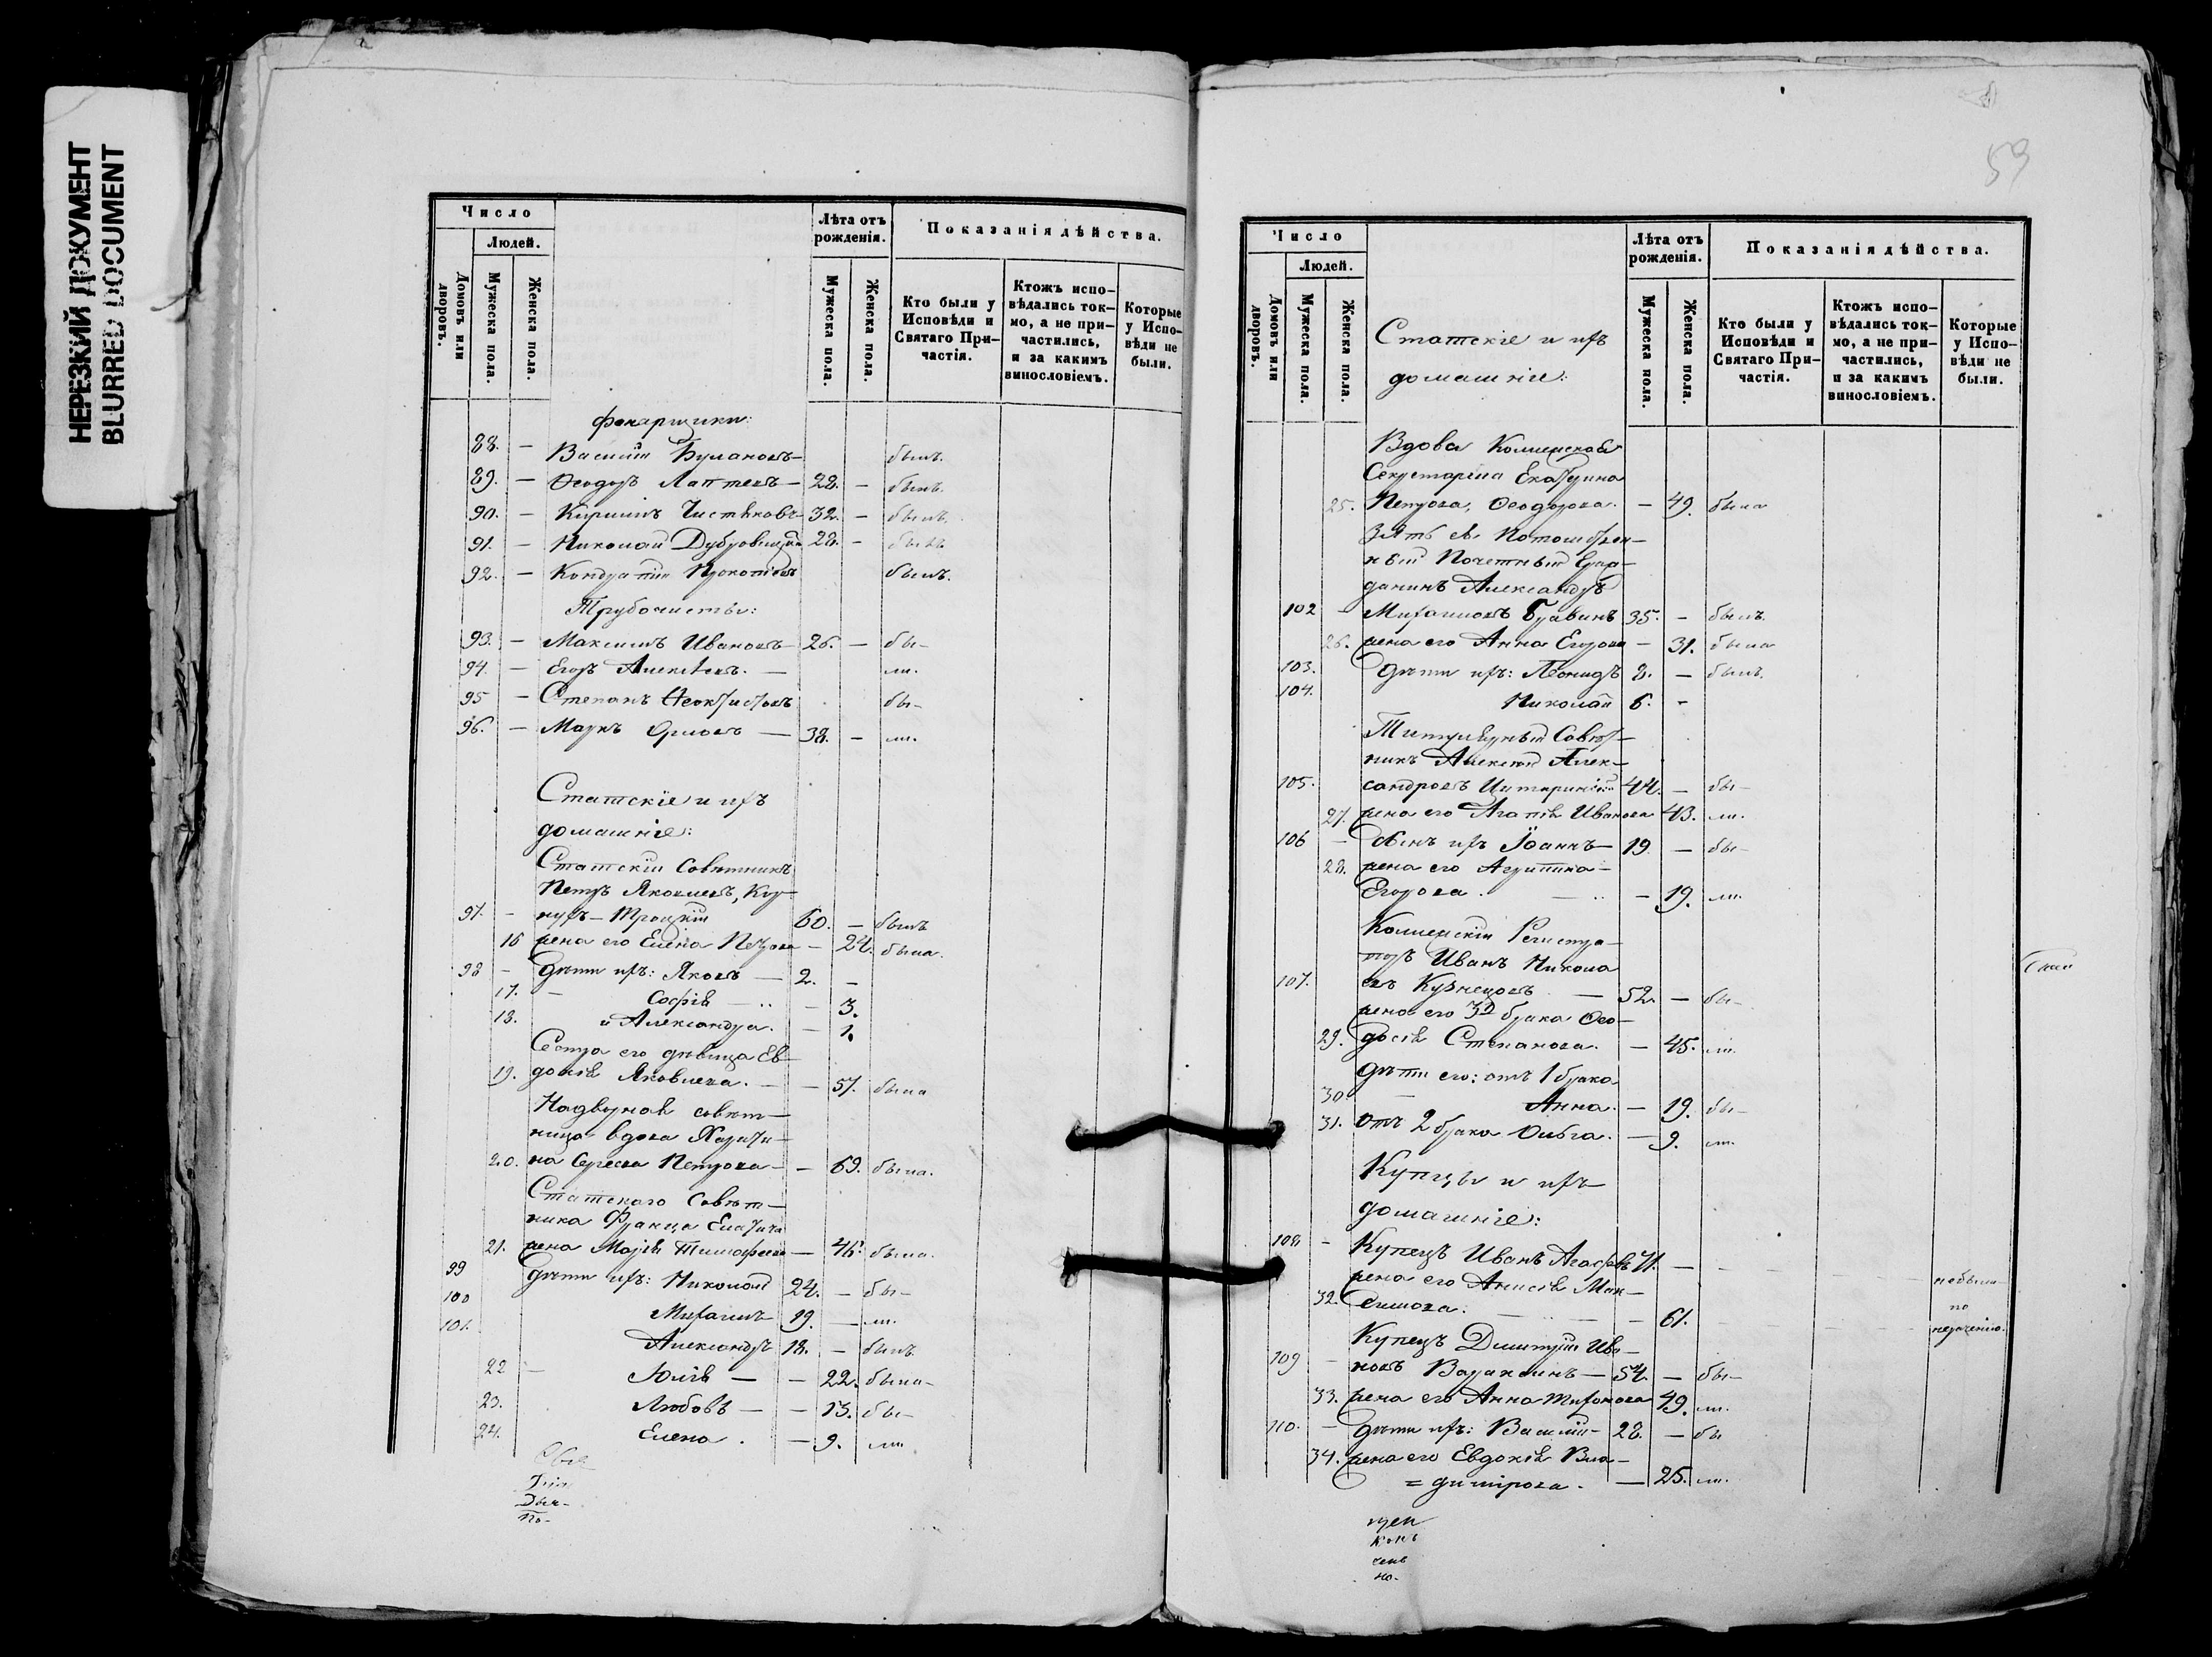 НЕРЕЗКИЙ ДОКУМЕНТ
BLURRED DOCUMENT
Число
Людей.
Домовъ или дворовъ.
Мужеска пола.
Женска пола.
Лѣта отъ рожденія.
Мужеска пола.
Женска пола.
Показанія дѣйства.
Кто были у Исповѣди и Святаго Причастія.
Ктожъ исповѣдались токмо, а не причастились, и за какимъ винословіемъ.
Которые у Исповѣди не были.
фонарщики:
88. — Василій — былъ.
89. — Ѳеодоръ Лаптевъ — 28. — былъ.
90. — Кириллъ Чистяковъ 32. — былъ.
91. — Николай 28. — былъ
92. — Кондратій Прокопіевъ былъ.
Трубочисты:
93. — Максимъ Ивановъ — 26. — бы-
94. — Егоръ Алексѣевъ. — ли.
95 — Степанъ Ѳеоктистовъ бы-
96. — Маркъ Орловъ — 38. — ли.
Статскіе и ихъ
домашніе:
Статскій Совѣтникъ
Петръ Яковлевъ, Кор-
97. — нухъ-Троцкій 60. — былъ
16 жена его Елена Петрова — 24. была.
98 — дѣти ихъ: Яковъ — 2. —
17. — Софія — — 3.
18. и Александра. — 1.
Сестра его дѣвица Ев-
19. докія Яковлева. — — 57. была
Надворная совѣт-
ница вдова Харити-
20. на Петрова — — 69. была.
Статскаго Совѣт-
ника Франца
21. жена Марія Тимофеева — 46. была.
99 дѣти ихъ: Николай 24. — бы-
100 Михаилъ 19. — ли.
101. Александръ 18. — былъ
22 — Юлія — — 22. была-
23. Любовь — — 13. бы-
24. Елена. — 9. ли
По-
59
Число
Людей.
Домовъ или дворовъ.
Мужеска пола.
Женска пола.
Статскіе и ихъ
домашніе:
Лѣта отъ рожденія.
Мужеска пола.
Женска пола.
Показанія дѣйства.
Кто были у Исповѣди и Святаго Причастія.
Ктожъ исповѣдались токмо, а не причастились, и за какимъ винословіемъ.
Которые у Исповѣди не были.
Вдова Коллежская
Секретарша Екатерина
25. Петрова, Ѳеодорова. — 49. была
Зять ея Потомствен-
ный Почетный Граж-
данинъ Александръ
102 — Михаиловъ Бравинъ 35. — былъ.
26. жена его Анна Егорова — 31. была
103. дѣти ихъ: Леонидъ 8. — былъ.
104. Николай 6. —
Титулярный Совѣт-
никъ Алексѣй Алек-
105. сандровъ 44. — бы-
27. жена его Агапія Иванова 43. ли.
106 — Сынъ ихъ Іоаннъ — 19 — бы-
28. жена его Агрипина —
Егорова. — 19. ли.
Коллежскій Регистра-
торъ Иванъ Никола
107. евъ Кузнецовъ — 52. — бы-
жена его 3го брака Ѳео-
29. досія Степанова. — 45. ли.
дѣти его: отъ 1 брака
30. — Анна. — 19. бы-
31. отъ 2 брака Ольга. — 9. ли.
Купцы и ихъ
домашніе:
108 — Купецъ Иванъ 71. —
жена его Анисія Мак-
32. симова. — 61.
небыли
по
нераченію.
Купецъ Димитрій Ива-
109 — новъ Вараксинъ — 54. — бы-
33. жена его Анна 49. ли.
110. — дѣти ихъ: Василій — 28. — бы
34. жена его Евдокія Вла-
= димірова. — 25. ли.